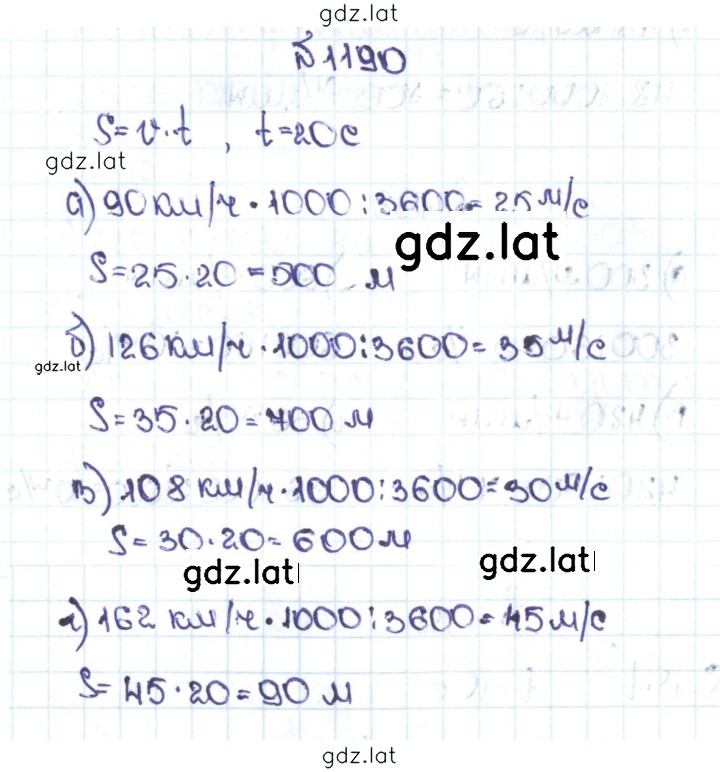 gdz.lat
№1190
S=v·t, t=20с
gdz.lat
а) 90км/ч·1000:3600=25м/с
gdz.lat
S=25·20=500 м
б) 126км/ч·1000:3600=35м/с
gdz.lat
S=35·20=700м
в) 108км/ч·1000:3600=30м/с
S=30·20=600м
gdz.lat gdz.lat
г) 162 км/ч·1000:3600=45м/с
S=45·20=90 м
gdz.lat